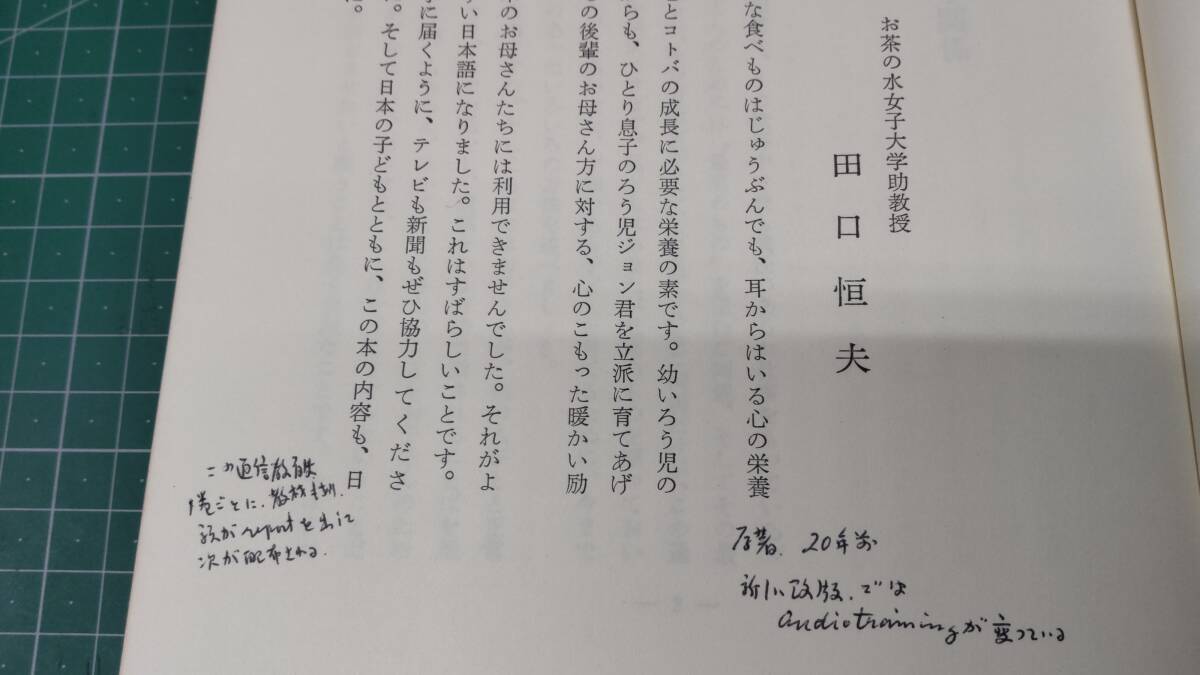 お茶の水女子大学助教授
田口恒夫
な食べものはじゅうぶんでも、耳からはいる心の栄養
とコトバの成長に必要な栄養の素です。幼いろう児の
らも、ひとり息子のろう児ジョン君を立派に育てあげ
の後輩のお母さん方に対する、心のこもった暖かい励
のお母さんたちには利用できませんでした。それがよ
い日本語になりました。これはすばらしいことです。
に届くように、テレビも新聞もぜひ協力してくださ
。そして日本の子どもとともに、この本の内容も、日
。
この通信教育
ごとに、教材
がreportを出して
次が配布される.
原著. 20年前
新しい改版. では
audiotrainingが変っている